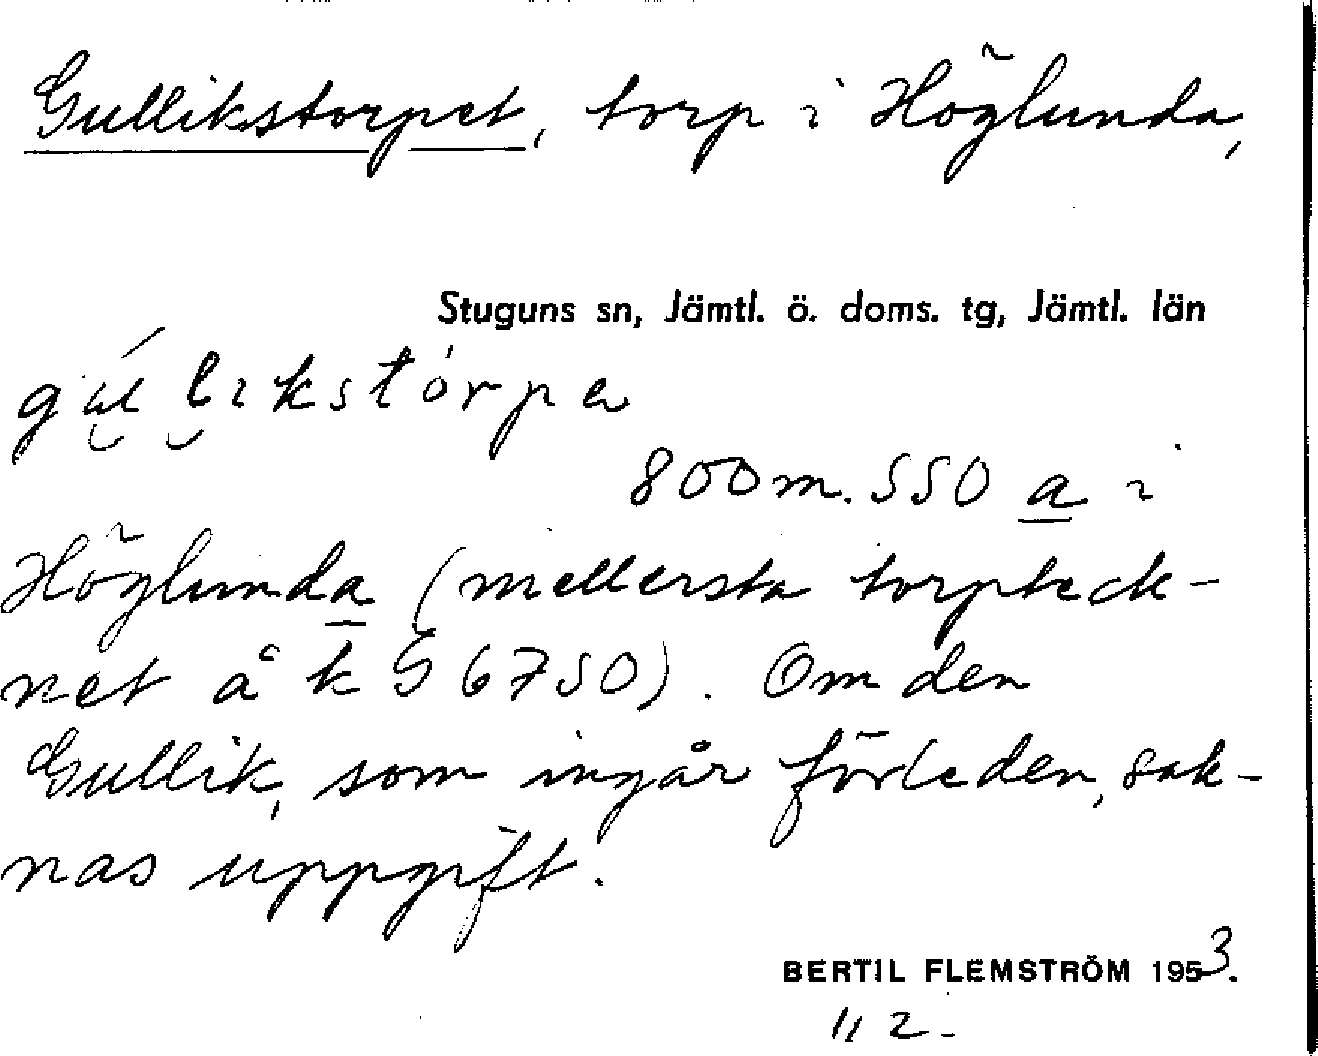 Gullikstorpet, torp i Höglunda,
Stuguns sn, Jämtl. ö. doms. tg, Jämtl. län
800 m. SSO a i
Höglunda (mellersta torpteck-
net å k S 6750). Om den
Gullik, som ingår förleden, sak-
nas uppgift.
BERTIL FLEMSTRÖM 1953.